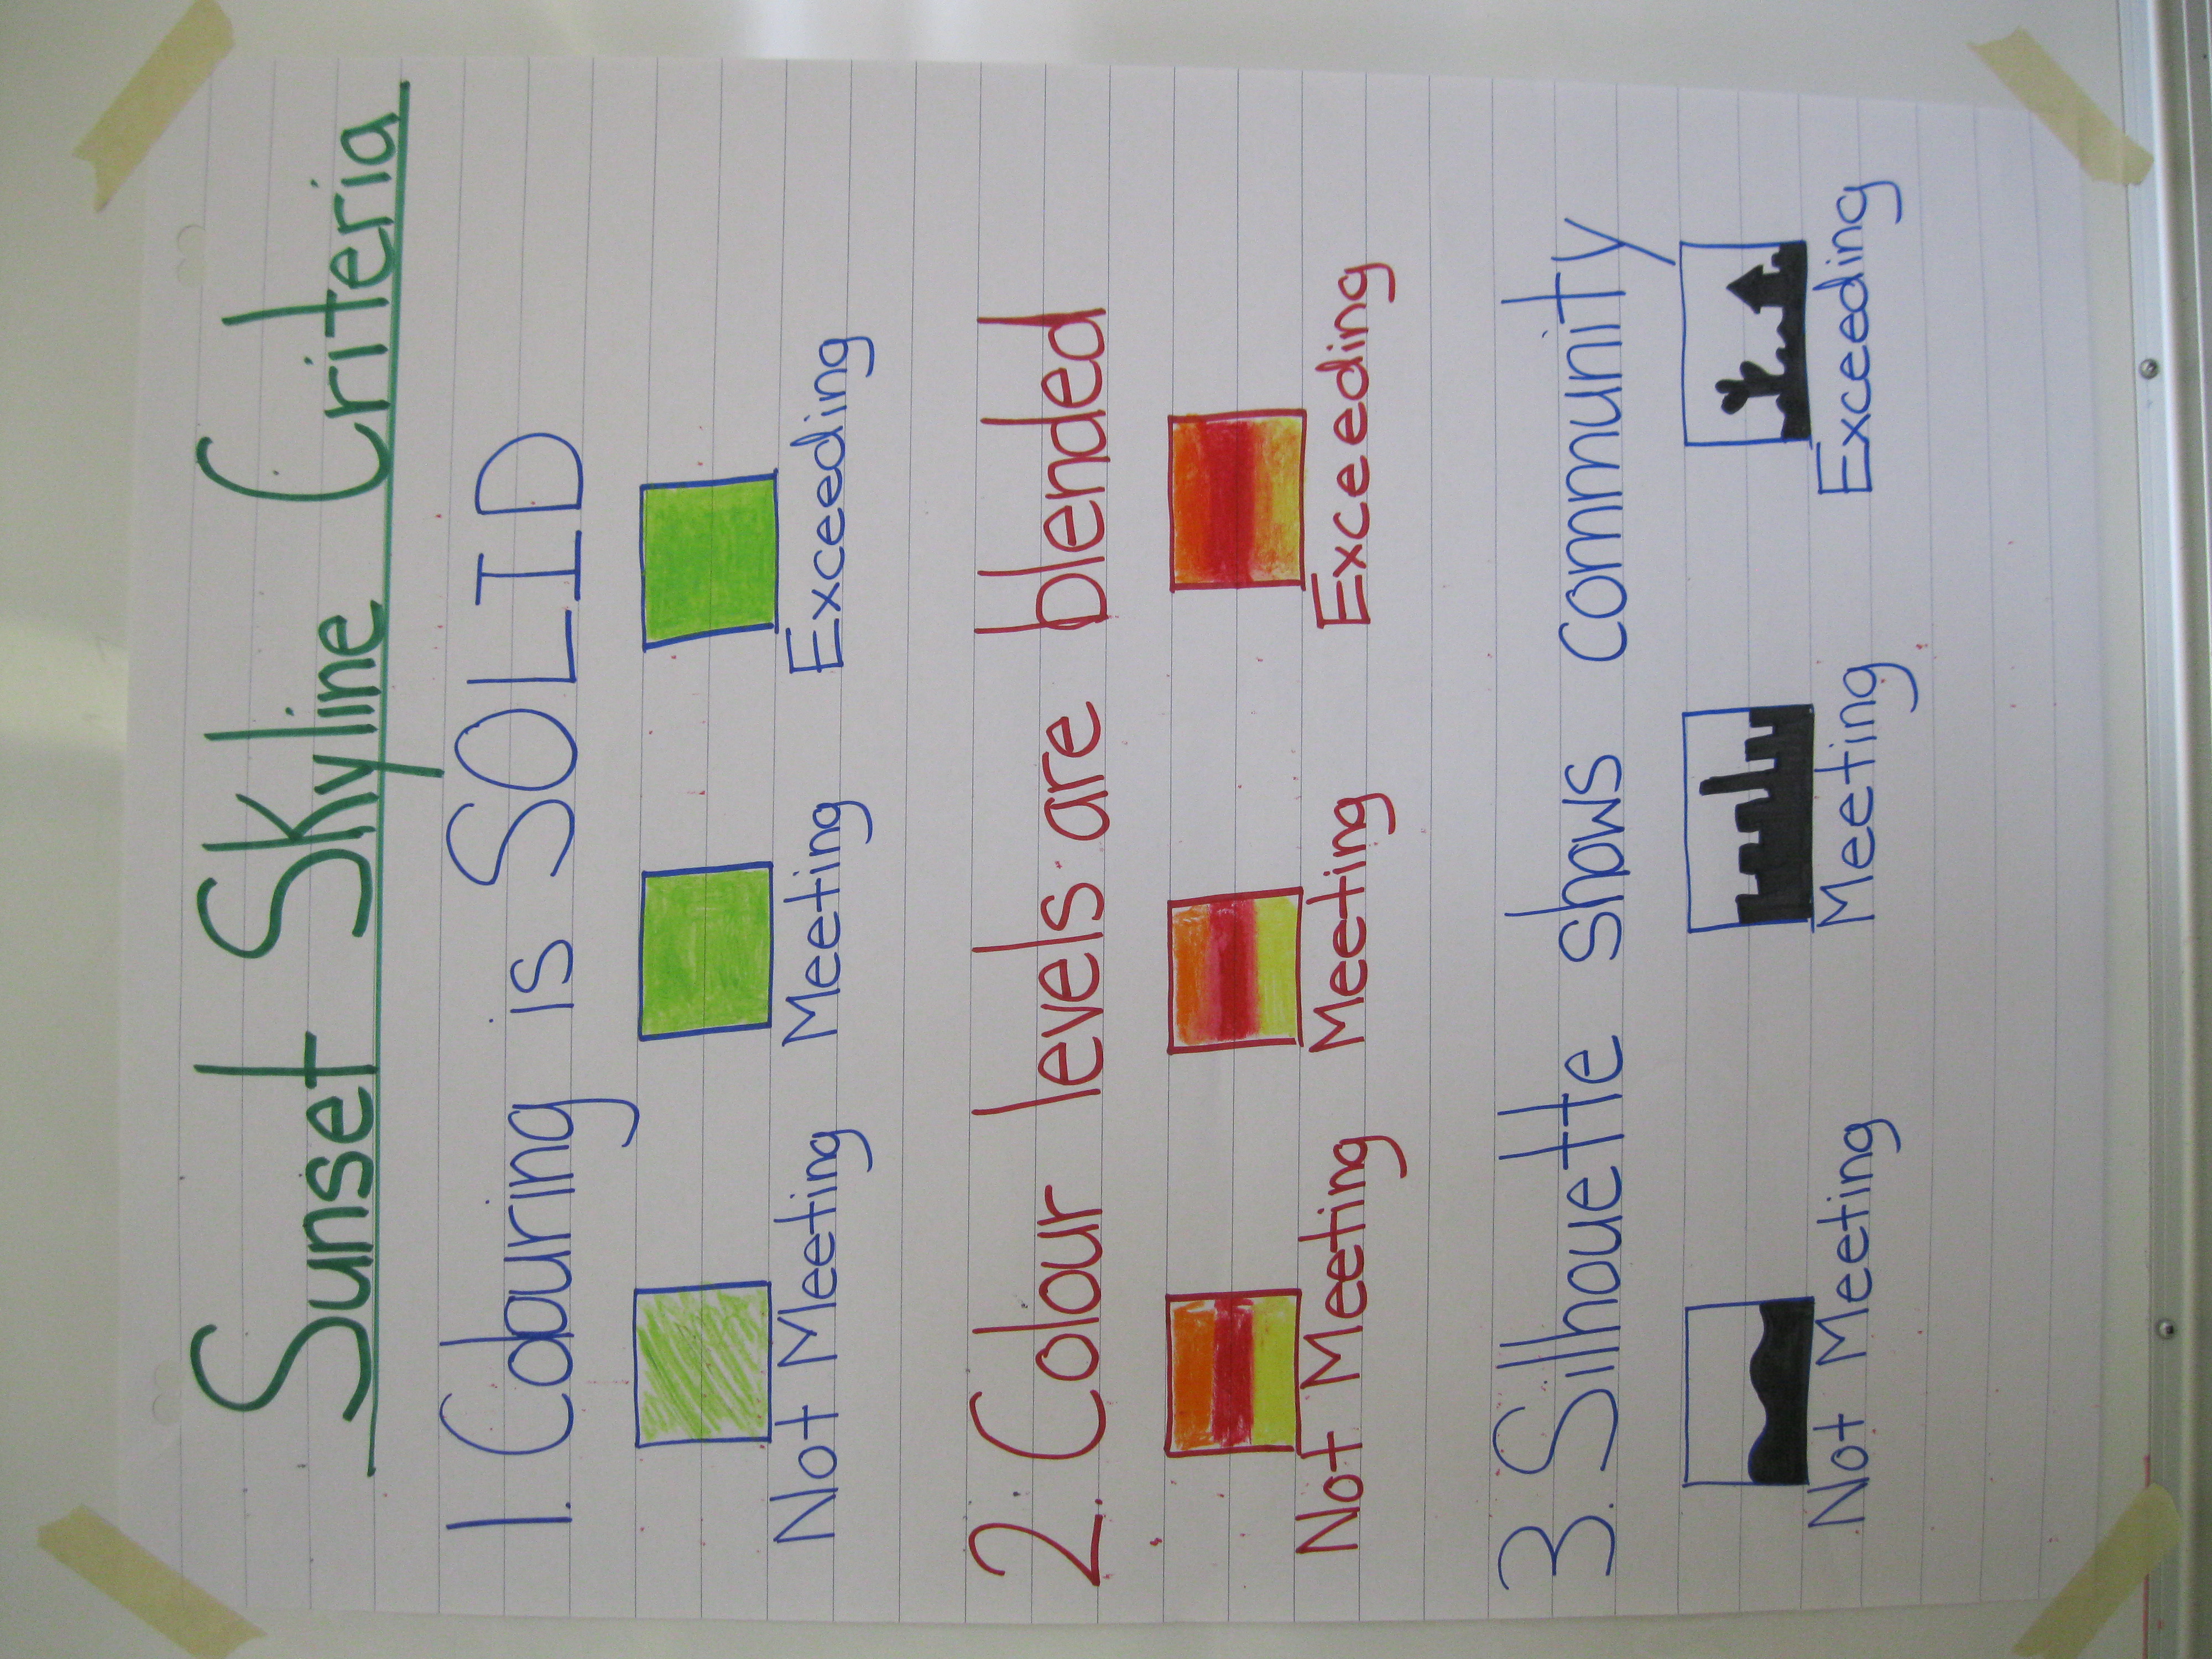 Sunset Skyline Criteria
1. Colouring is SOLID
Not Meeting Meeting Exceeding
2. Colour levels are blended
Not Meeting Meeting Exceeding
3. Silhouette shows community
Not Meeting Meeting Exceeding